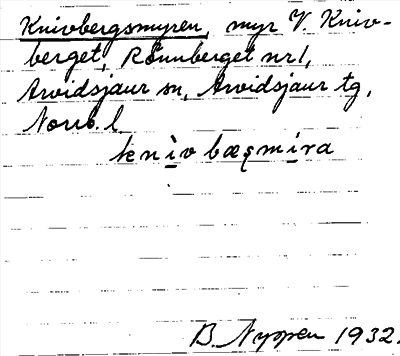 Knivbergsmyren, myr V. Kniv-
berget, Rönnberget nr 1,
Arvidsjaur sn, Arvidsjaur tg,
Norrb. l
knìv bæșmìra
B. Nyppen 1932.